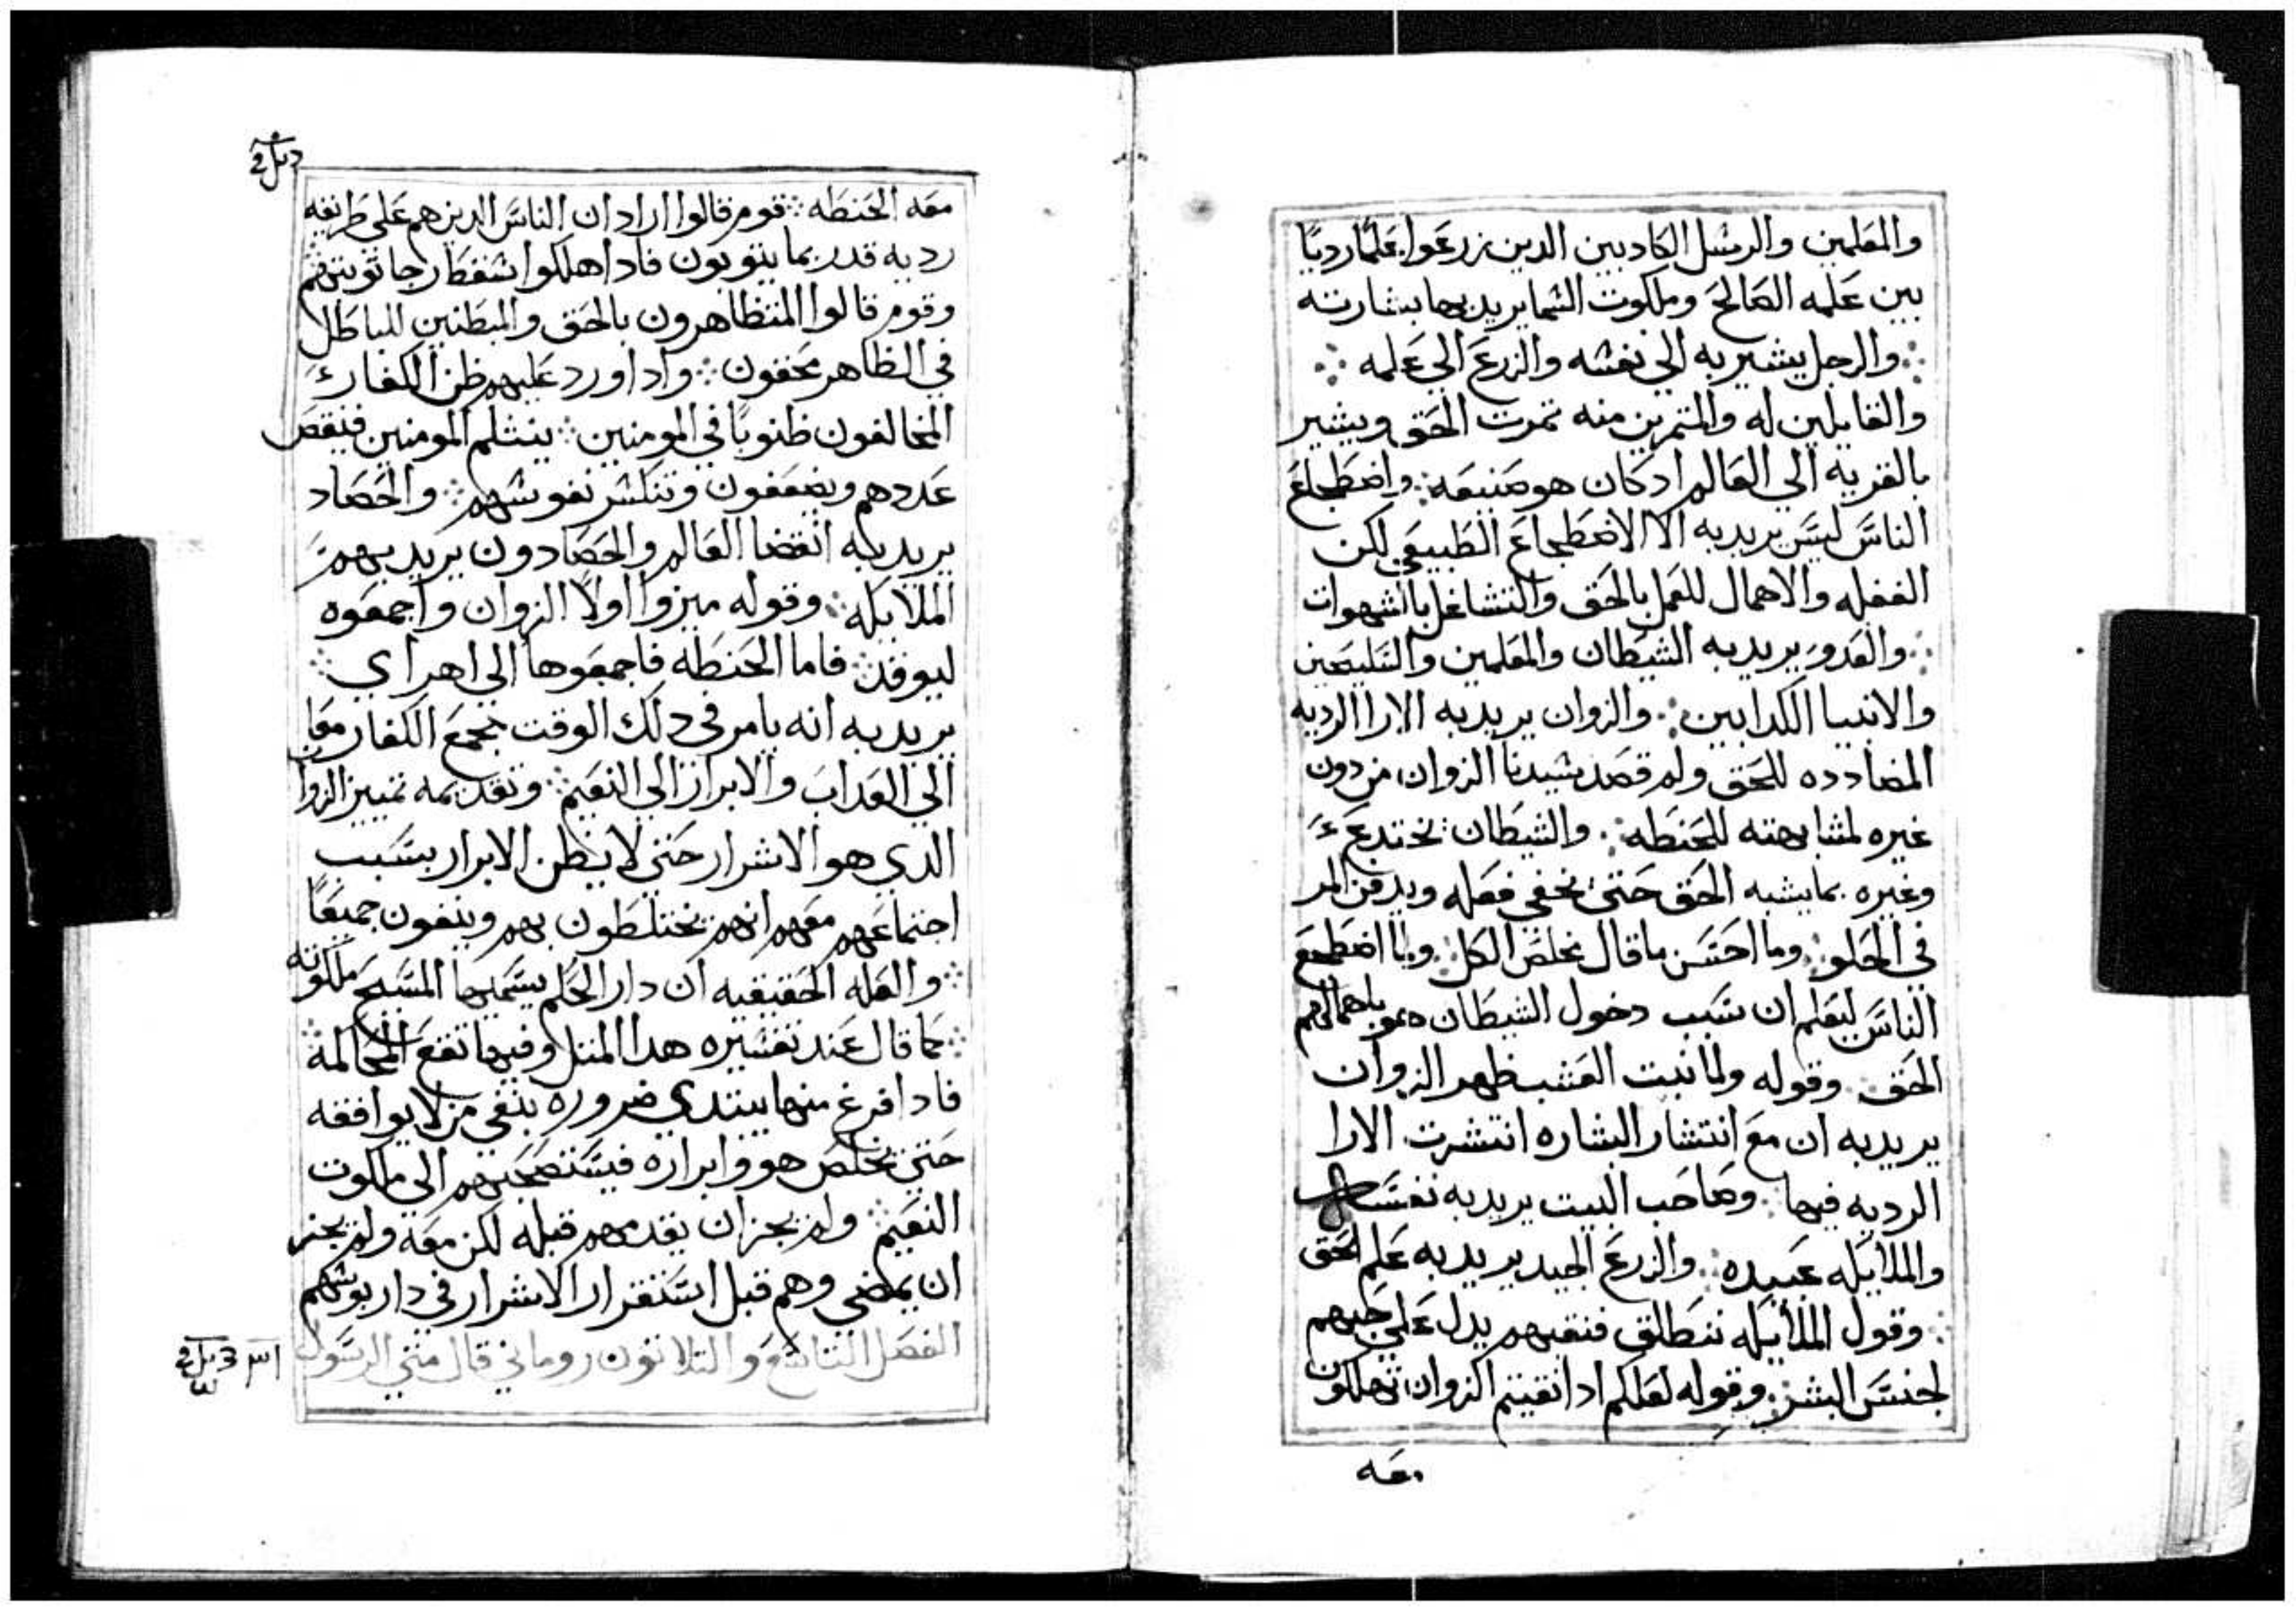 والمعلمين والرسل الكادبين الدين زرعوا علمًا رديًا
بين علمه الصالح وملكوت السما يريد بها بشارته
والرجل يشير به الي نفسه والزرع الي علمه
والقابلين له والمتمرين منه تمرت الحق ويشير
بالقريه الي العالم اد كان هو صنيعه واضطجاع
الناس ليس يريد به الا الاضطجاع الطبيعي لكن
الغفله والاهمال للعمل بالحق والتشاغل بالشهوات
والعدو يريد به الشيطان والمعلمين والسليحين
والانبيا الكدابين والزوان يريد به الارا الرديه
المضادده للحق ولم قصد سيدنا الزوان من دون
غيره لمشابهته للحنطه والشيطان يختدع
وغيره بما يشبه الحق حتي يخفي فعله ويدفن المر
في الحلو وما احسن ما قال مخلص الكل ولما اضطجع
الناس ليعلم ان سبب دخول الشيطان هو باهمالهم
الحق وقوله ولما نبت العشب ظهر الزوان
يريد به ان مع انتشار البشاره انتشرت الارا
الرديه فيها وصاحب البيت يريد به نفسه
والملايكه عبيده والزرع الجيد يريد به علم الحق
وقول الملايكه ننطلق فننقيهم يدل علي حبهم
لجنس البشر وقوله لعلكم ادا نقيتم الزوان تهلكون
معه
معه الحنطه قوم قالوا اراد ان الناس الدين هم علي طريقه
رديه قد ربما يتوبون فادا هلكوا سقط رجا توبتهم
وقوم قالوا المتظاهرون بالحق والمبطنين للباطل
في الظاهر محقون وادا ورد عليهم ظن الكفار
المخالفون ظنوبًا في المومنين ينثلم المومنين فينقص
عددهم ويضعفون وتنكسر نفوسهم والحصاد
يريد به انقضا العالم والحصادون يريد بهم
الملايكه وقوله ميزوا اولًا الزوان واجمعوه
ليوقد فاما الحنطه فاجمعوها الي اهراي
يريد به انه يامر في دلك الوقت بجمع الكفار معا
الي العداب والابرار الي النعيم وتقديمه تمييز الزوان
الدي هو الاشرار حتي لا يظن الابرار بسبب
اجتماعهم معهم انهم يختلطون بهم وينفون جميعًا
والعله الحقيقيه ان دار الحكم يسميها المسيح ملكوته
كما قال عند تفسيره هدا المتل وفيها تقع المحاكمة
فادا فرغ منها يبتدي ضروره بنفي من لا يوافقه
حتي يخلص هو وابراره فيستصحبهم الي ملكوت
النعيم ولم يجز ان يقدمهم قبله لكن معه ولم يجز
ان يمضي وهم قبل استقرار الاشرار في دار بوسهم
الفصل التاسع والتلاتون روماني قال متي الرسول